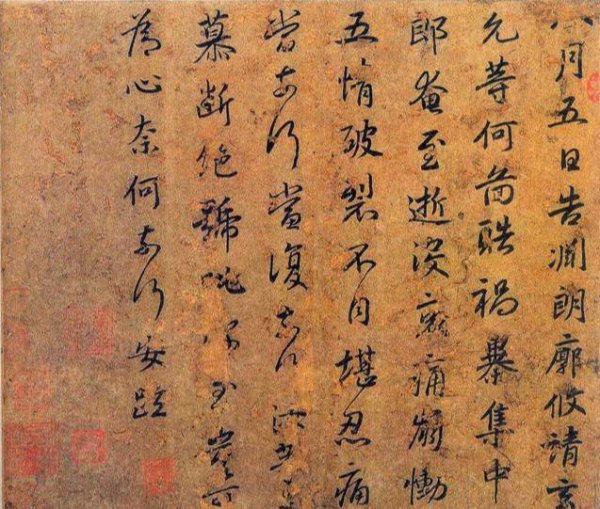 八月五日告淵朗廓攸靖玄
允等何啚酷禍暴集中
郎奄至逝没哀痛崩慟
五情破裂不自堪忍痛
當奈何當復奈何汝等
慕斷絶號咷深至豈可
為心奈何奈何安疏